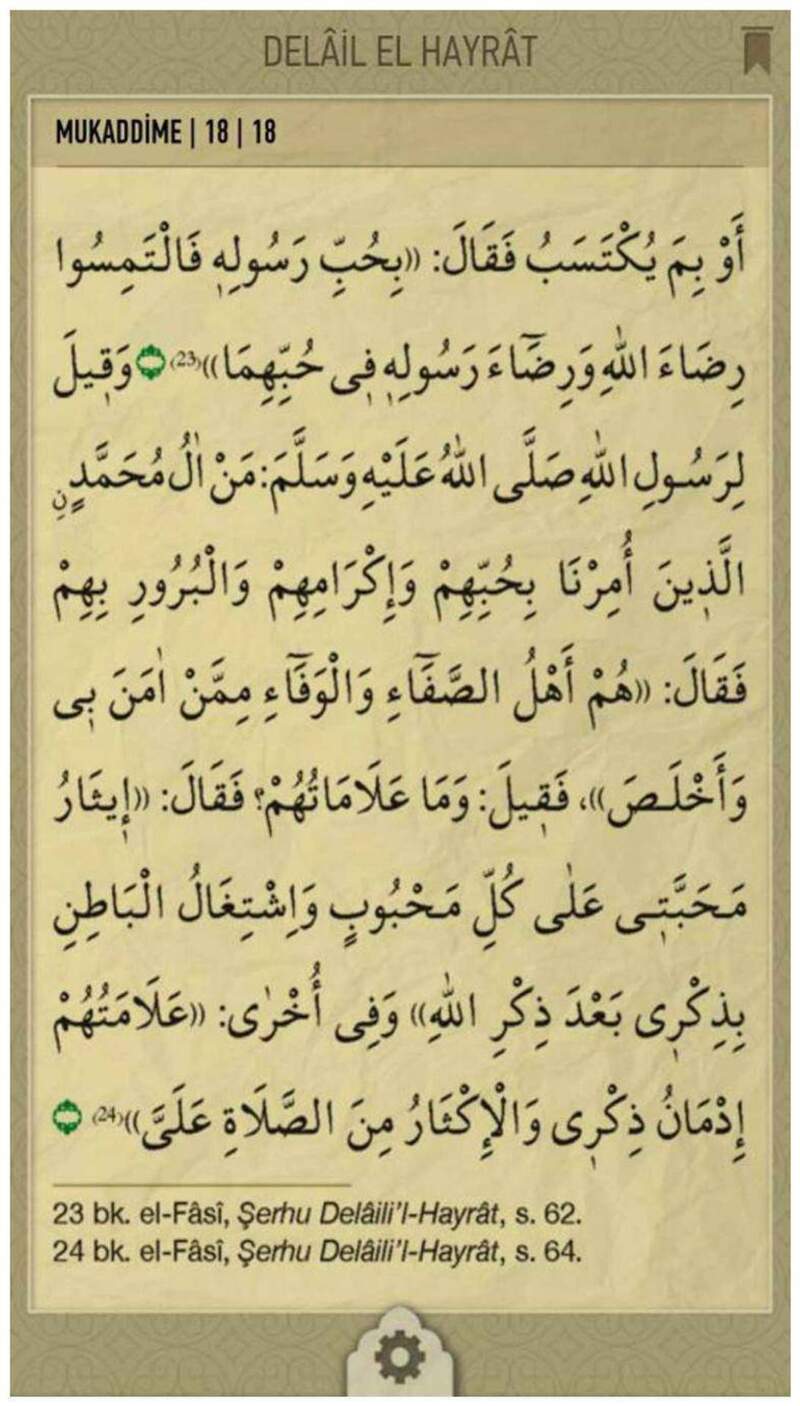 DELÂİL EL HAYRÂT
MUKADDİME | 18 | 18
أَوْ بِمَ يُكْتَسَبُ فَقَالَ: «بِحُبِّ رَسُولِهٖ فَالْتَمِسُوا
رِضَاءَ اللهِ وَرِضَٓاءَ رَسُولِهٖ فٖى حُبِّهِمَا»(23) وَقٖيلَ
لِرَسُولِ اللهِ صَلَّى اللهُ عَلَيْهِ وَسَلَّمَ: مَنْ اٰلُ مُحَمَّدٍنِ
الَّذٖينَ أُمِرْنَا بِحُبِّهِمْ وَإِكْرَامِهِمْ وَالْبُرُورِ بِهِمْ
فَقَالَ: «هُمْ أَهْلُ الصَّفَٓاءِ وَالْوَفَٓاءِ مِمَّنْ اٰمَنَ بٖى
وَأَخْلَصَ»، فَقٖيلَ: وَمَا عَلَامَاتُهُمْ؟ فَقَالَ: «إٖيثَارُ
مَحَبَّتٖى عَلٰى كُلِّ مَحْبُوبٍ وَاِشْتِغَالُ الْبَاطِنِ
بِذِكْرٖى بَعْدَ ذِكْرِ اللهِ» وَفٖى أُخْرٰى: «عَلَامَتُهُمْ
إِدْمَانُ ذِكْرٖى وَالْإِكْثَارُ مِنَ الصَّلَاةِ عَلَىَّ»(24)
23 bk. el-Fâsî, Şerhu Delâili’l-Hayrât, s. 62.
24 bk. el-Fâsî, Şerhu Delâili’l-Hayrât, s. 64.